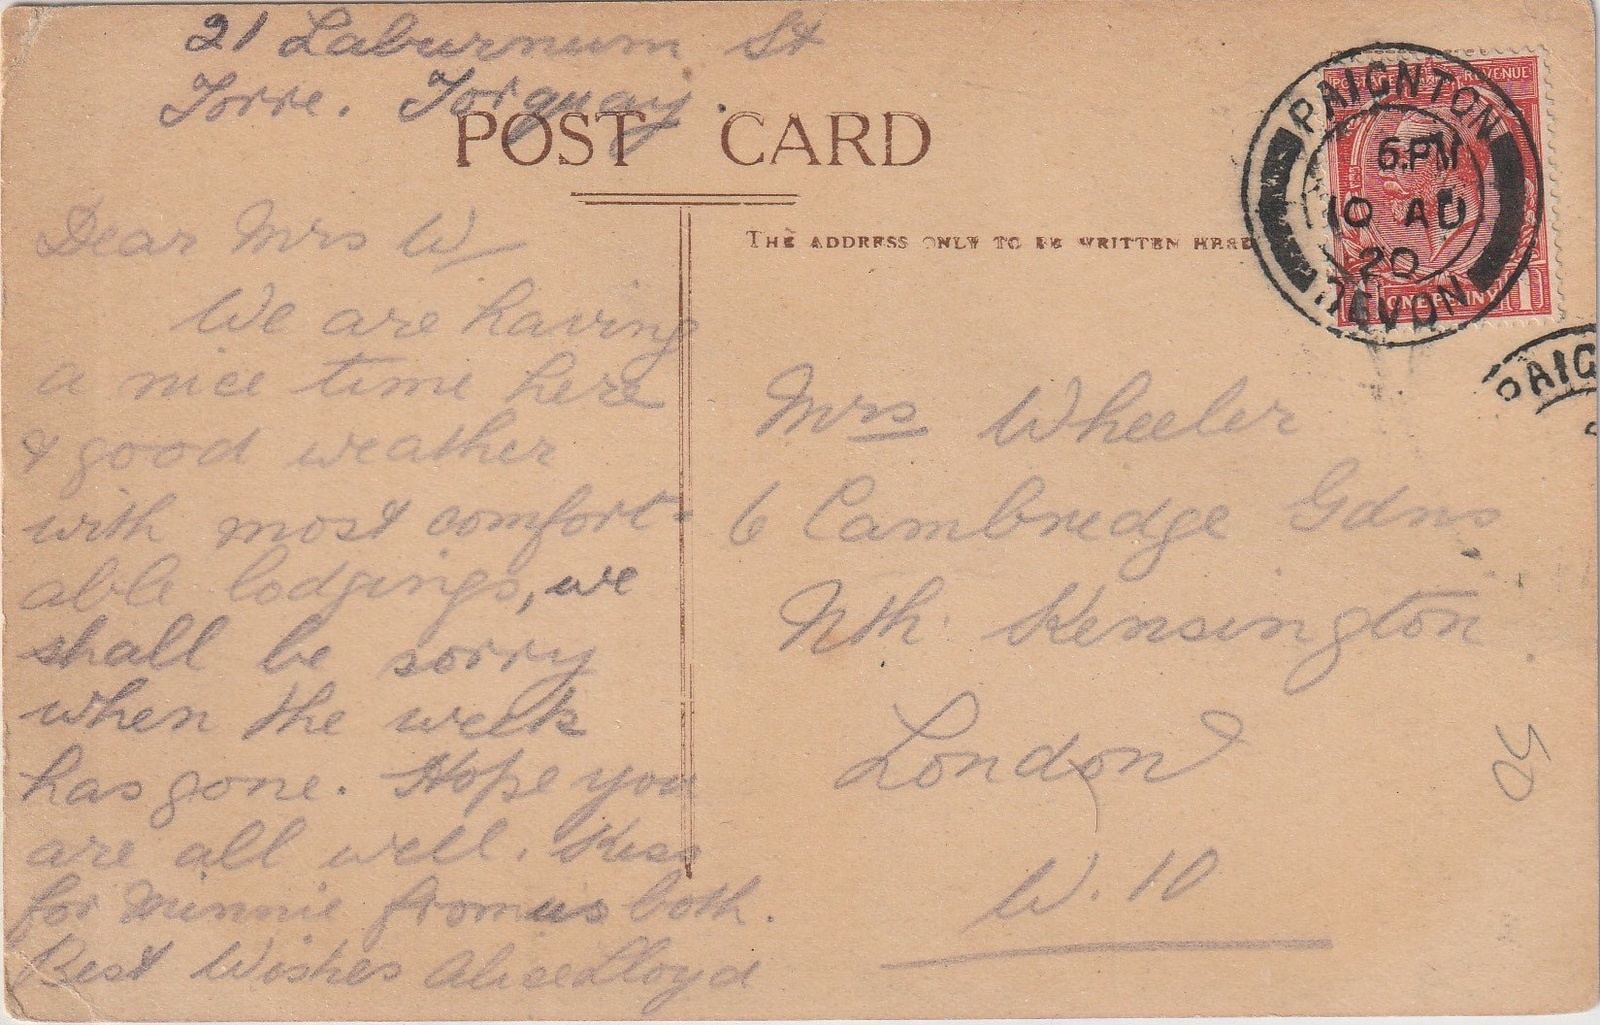 21 Laburnum St
Torre. Torquay.
POST CARD
THE ADDRESS ONLY TO BE WRITTEN HERE
Dear Mrs W
We are having
a nice time here
& good weather
with most comfort-
able lodgings, we
shall be sorry
when the week
has gone. Hope you
are all well. Kiss
for Minnie from us both.
Best Wishes Alice Lloyd
POSTAGE REVENUE
ONE PENNY 1
PAIGNTON
6.PM
10 AU
20
DEVON
PAIG
Mrs Wheeler
6 Cambredge Gdns
Nth. Kensington.
London
W. 10